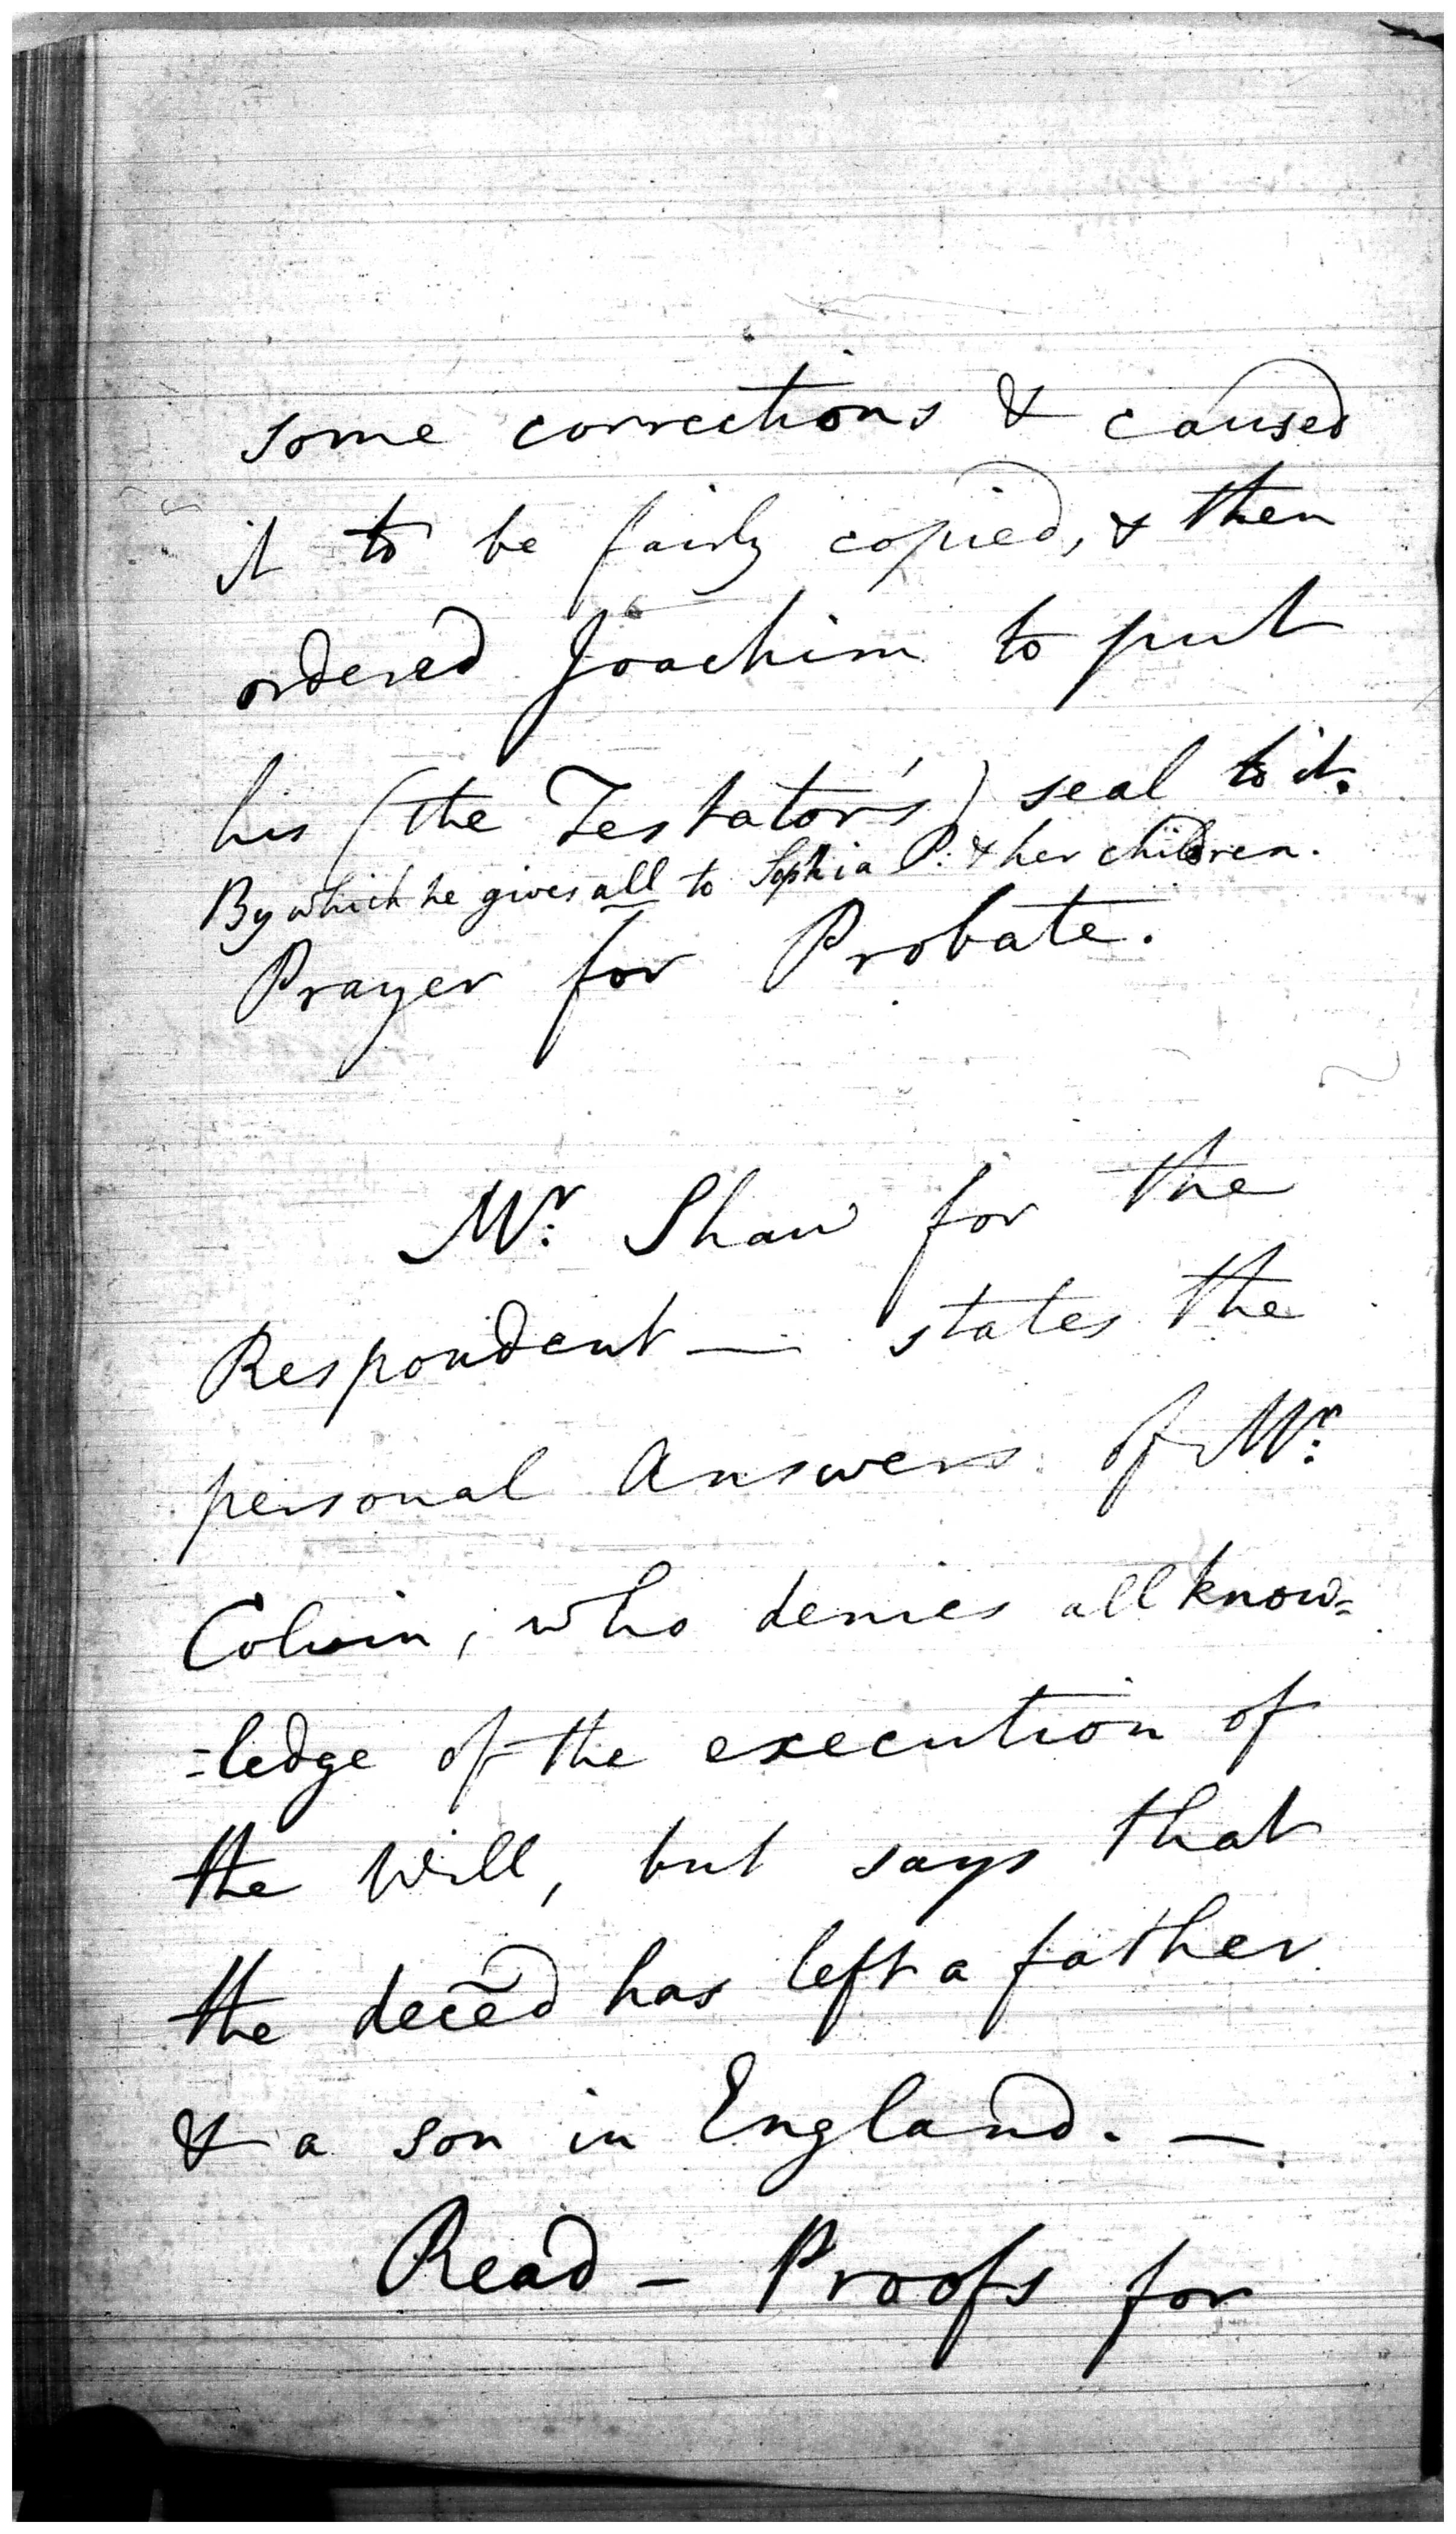 some corrections & caused
it to be fairly copied, & then
ordered Joachim to put
his (the Testator's) seal to it.
By which he gives all to Sophia P. & her children.
Prayer for Probate.
Mr. Shaw for the
Respondent — states the
personal Answers of Mr.
Colvin, who denies all know=
=ledge of the execution of
the Will, but says that
the deced has left a father
& a son in England. —
Read — Proofs for